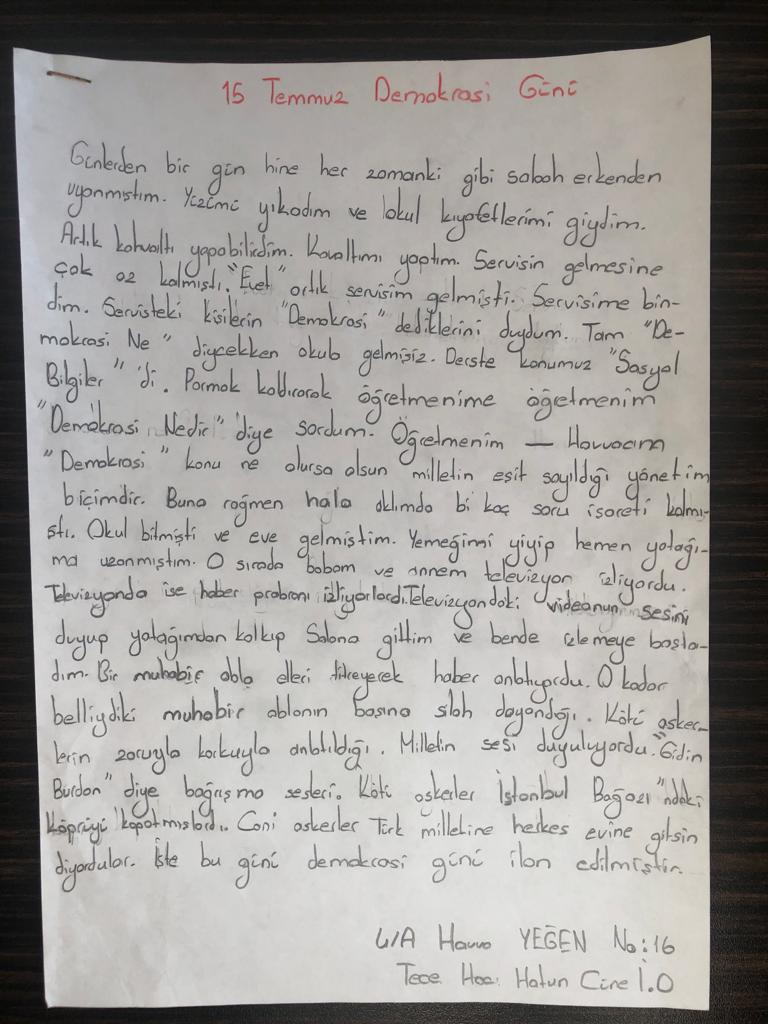 15 Temmuz Demokrasi Günü
Günlerden bir gün hine her zamanki gibi sabah erkenden
uyanmıştım. Yüzümü yıkadım ve okul kıyafetlerimi giydim.
Artık kahvaltı yapabilirdim. Kavaltımı yaptım. Servisin gelmesine
çok az kalmıştı. "Evet" artık servisim gelmişti. Servisime bin-
dim. Servisteki kişilerin "Demokrasi" dediklerini duydum. Tam "De-
mokrasi Ne" diycekken okula gelmişiz. Derste konumuz "Sosyal
Bilgiler" 'di. Parmak kaldırarak öğretmenime öğretmenim
"Demokrasi Nedir" diye sordum. Öğretmenim — Havvacım
"Demokrasi" konu ne olursa olsun milletin eşit sayıldığı yönetim
biçimdir. Buna rağmen hala aklımda bi kaç soru işareti kalmı-
ştı. Okul bitmişti ve eve gelmiştim. Yemeğimi yiyip hemen yatağı-
ma uzanmıştım. O sırada babam ve annem televizyon izliyordu.
Televizyonda ise haber probramı izliyorlardı. Televizyondaki videonun sesini
duyup yatağımdan kalkıp Salona gittim ve bende izlemeye başla-
dım. Bir muhabir abla elleri titreyerek haber anlatıyordu. O kadar
belliydiki muhabir ablanın başına silah dayandığı. Kötü asker-
lerin zoruyla korkuyla anlatıldığı. Milletin sesi duyuluyordu. "Gidin
Burdan" diye bağrışma sesleri. Kötü askerler İstanbul Bağazı "ndaki
köprüyü kapatmışlardı.. Cani askerler Türk milletine herkes evine gitsin
diyordular. İşte bu günü demokrasi günü ilan edilmiştir.
4/A Havva YEĞEN No:16
Tece Hacı Hatun Cire İ.O